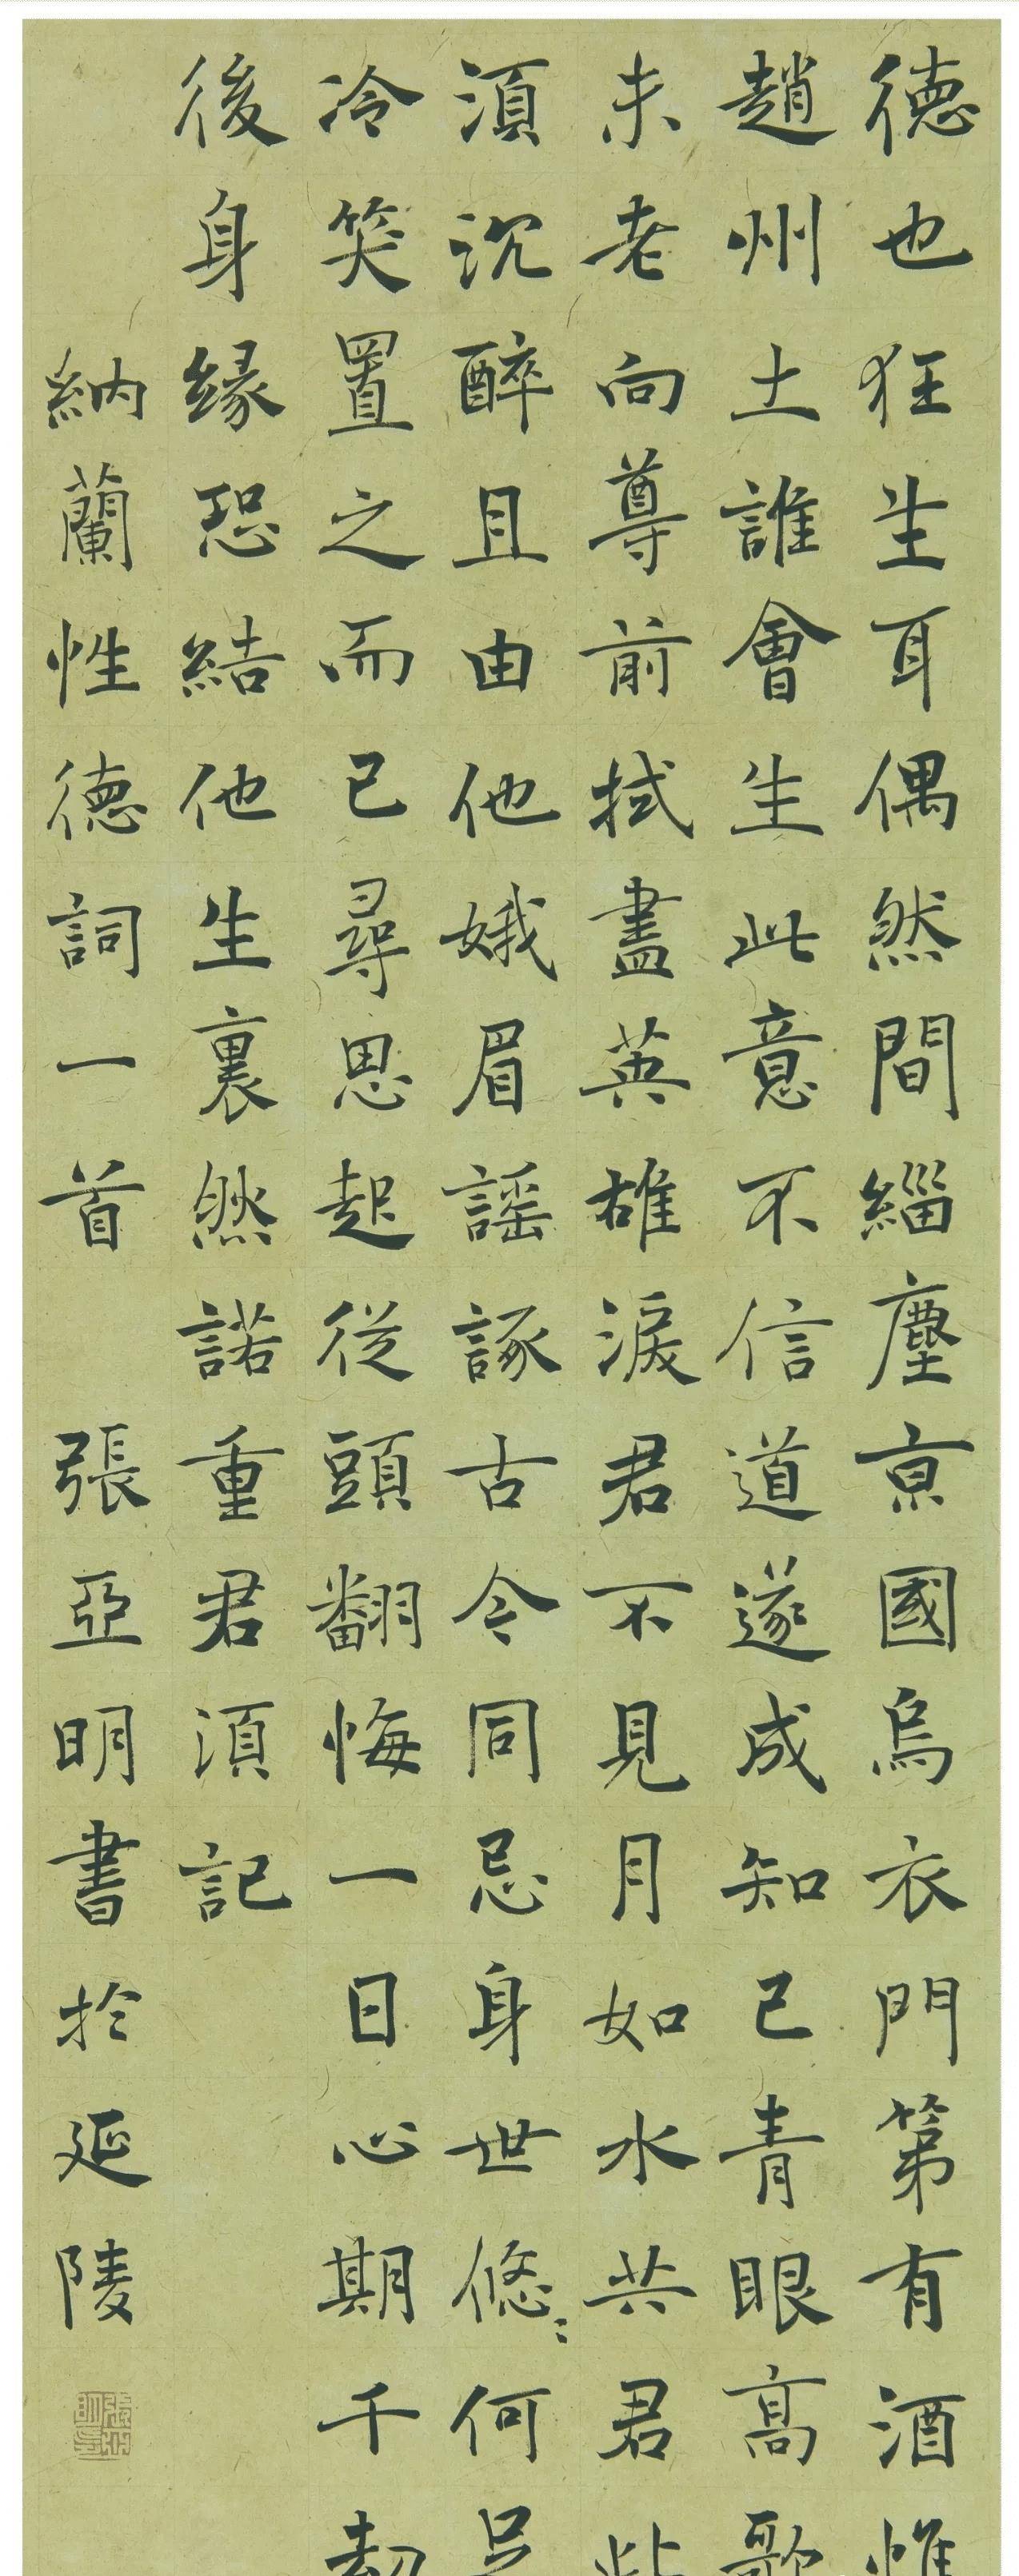 德也狂生耳偶然間緇塵京國烏衣門第有酒惟
趙州土誰會生此意不信道遂成知己青眼高歌
未老向尊前拭盡英雄淚君不見月如水共君此
須沈醉且由他娥眉謠諑古今同忌身世悠〻何足
冷笑置之而已尋思起從頭翻悔一日心期千劫
後身緣恐結他生裏然諾重君須記
納蘭性德詞一首 張亞明書於延陵